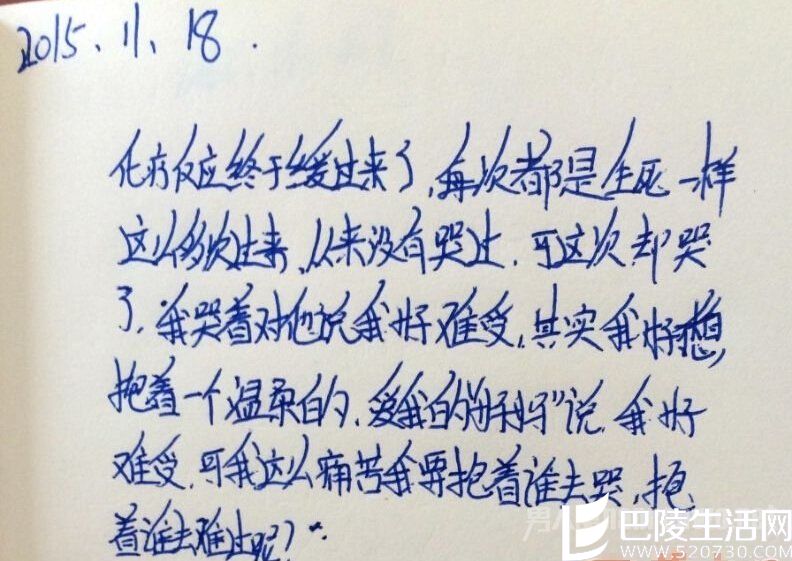 2015.11.18.
化疗反应终于缓过来了,每次都是生死一样
这么多次过来,从来没有哭过,可这次却哭
了,我哭着对他说我好难受,其实我好想
抱着一个温柔的,爱我的"妈妈"说,我好
难受,可我这么痛苦我要抱着谁去哭,抱
着谁去难过呢?
巴陵生活网
WWW.520730.COM